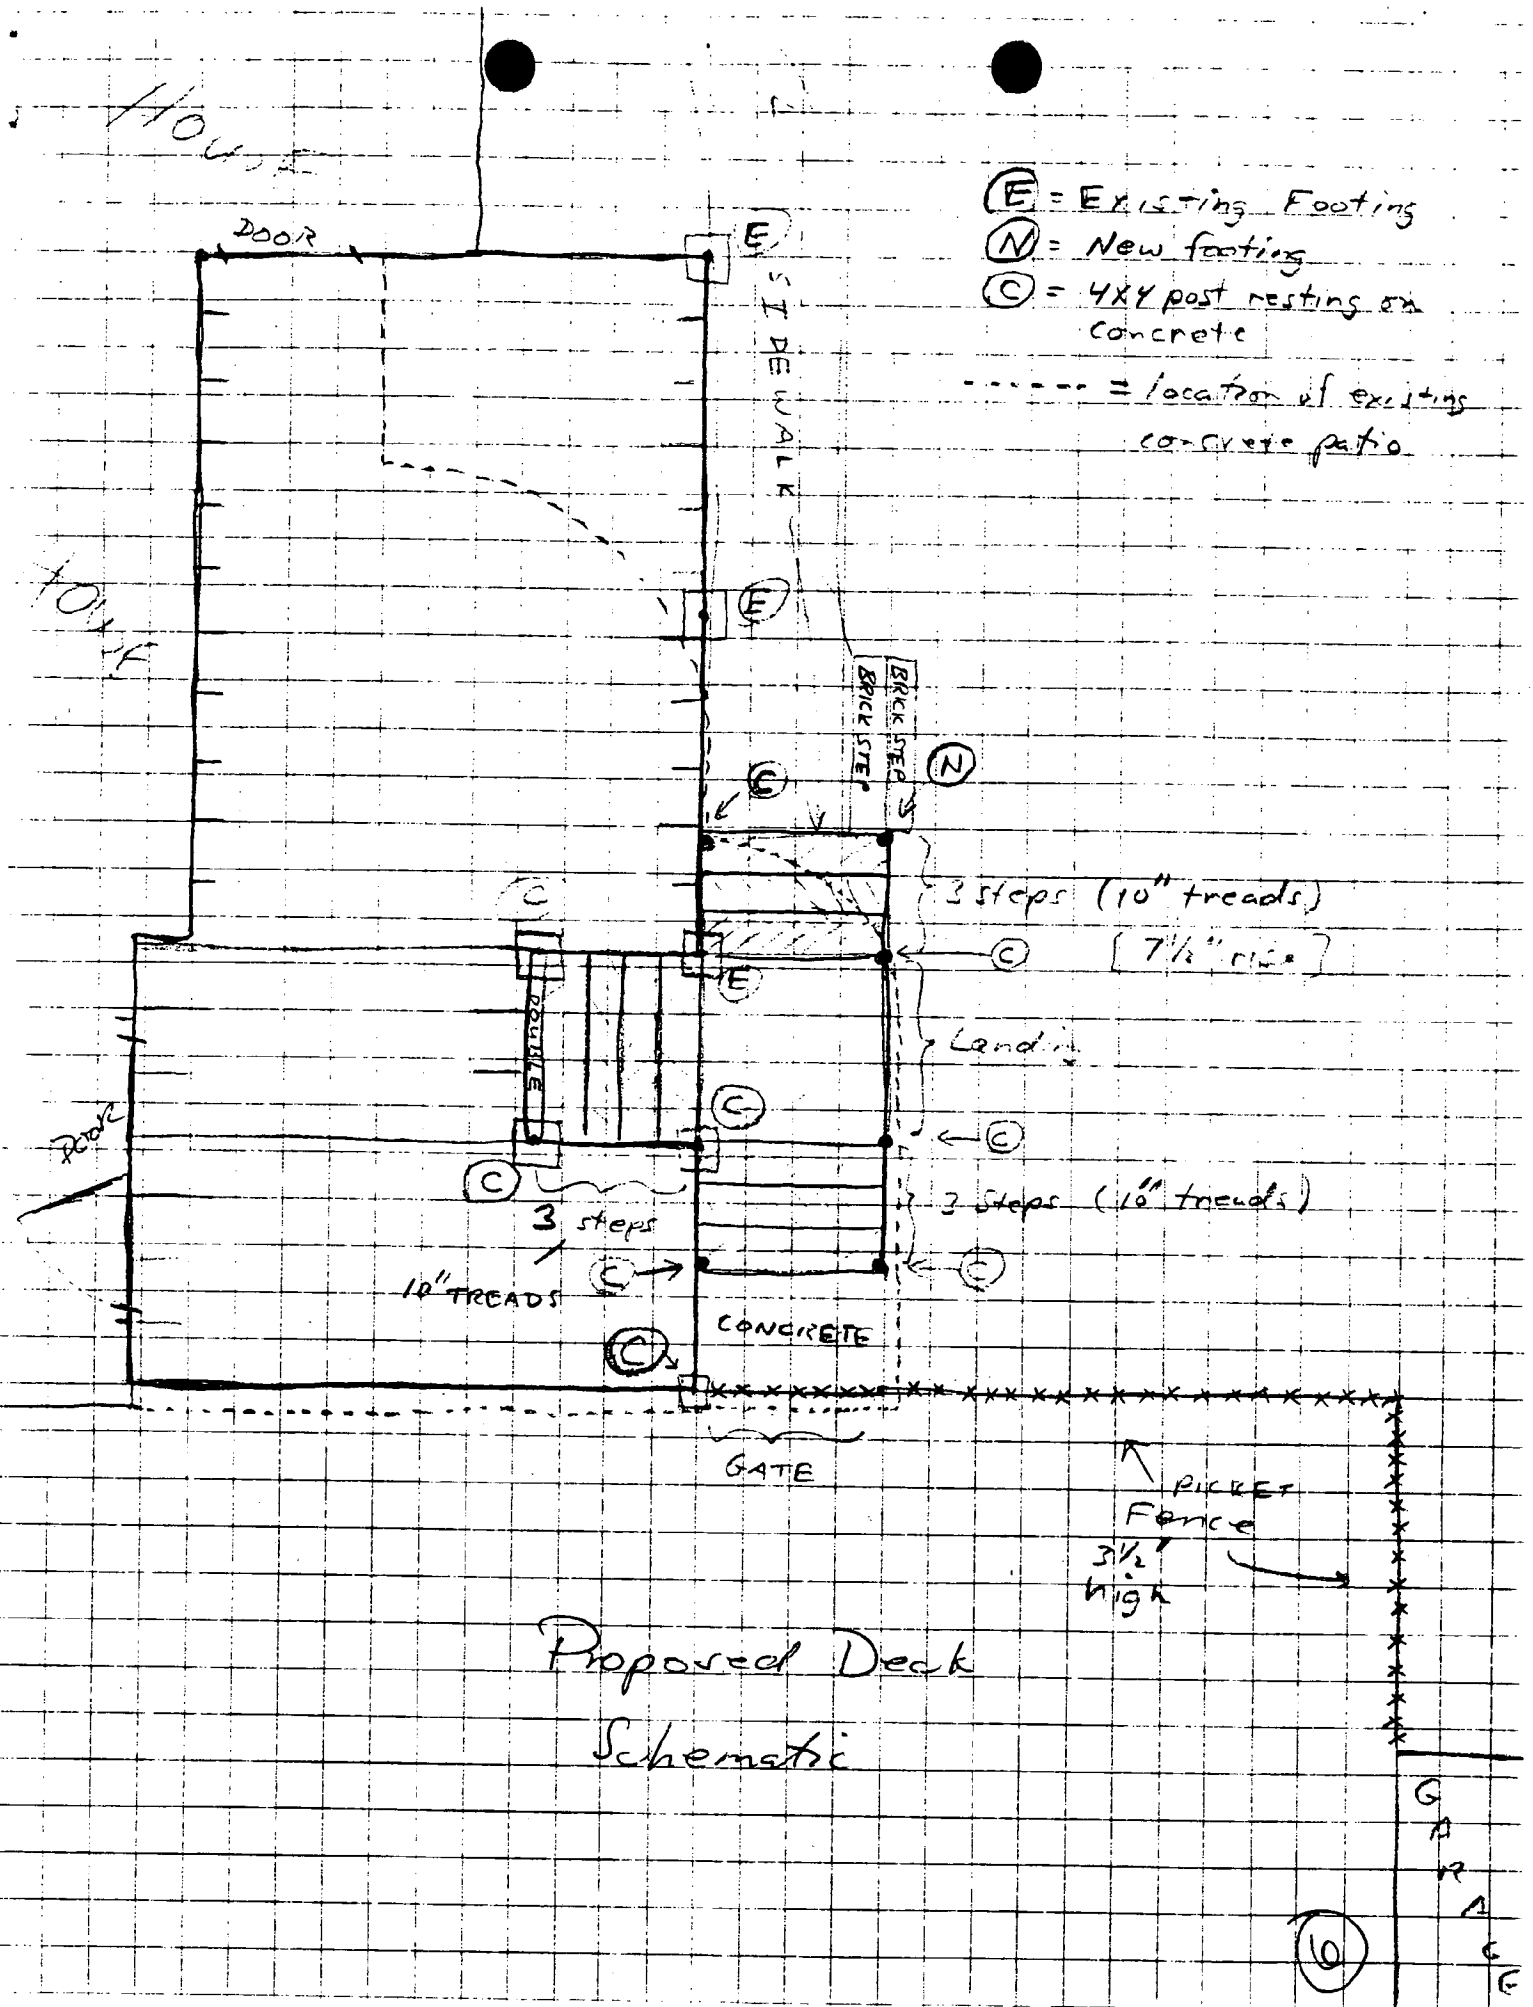 House
DOOR
E
SIDEWALK
E = Existing Footing
N = New footing
C = 4x4 post resting on
concrete
------ = location of existing
concrete patio
House
E
BRICK STEP
BRICK STEP
N
C
C
3 steps (10" treads)
C
[7 1/2" rise]
E
DOUBLE
Landing
C
DOOR
C
C
3 steps
3 steps (10" treads)
C
C
10" TREADS
CONCRETE
C
GATE
PICKET
Fence
3 1/2"
high
Proposed Deck
Schematic
GARAGE
6